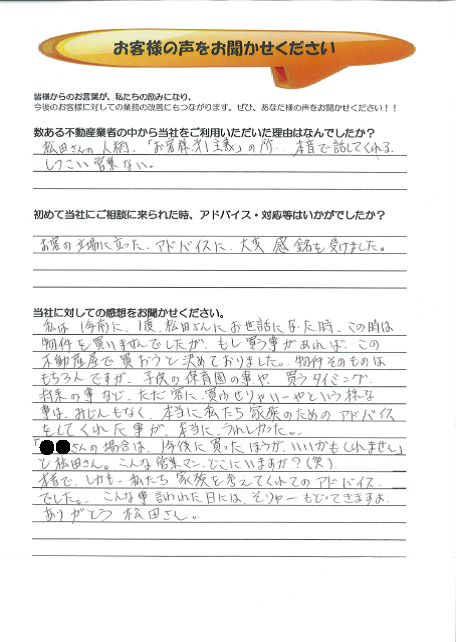 お客様の声をお聞かせください
皆様からのお言葉が、私たちの励みになり、
今後のお客様に対しての業務の改善にもつながります。ぜひ、あなた様の声をお聞かせください！！
数ある不動産業者の中から当社をご利用いただいた理由はなんでしたか？
松田さんの人柄、「お客様第1主義」の所… 本音で話してくれる、
しつこい営業ない。
初めて当社にご相談に来られた時、アドバイス・対応等はいかがでしたか？
お客の立場に立った、アドバイスに、大変 感銘を受けました。
当社に対しての感想をお聞かせください。
私は1年前に、1度、松田さんにお世話になった時、この時は
物件を買いませんでしたが、もし買う事があれば、この
不動産屋で買おうと決めておりました。物件そのものは
もちろんですが、子供の保育園の事や、買うタイミング、
将来の事など、ただ客に、買わせりゃいーやという様な
事は、みじんもなく、本当に私たち家族のためのアドバイス
をしてくれた事が、本当に、うれしかった。
「さんの場合は、1年後に買ったほうが、いいかもしれません」
と松田さん。こんな営業マン、どこにいますか？(笑)
本音で、しかも、私たち家族を考えてくれてのアドバイス
でした。こんな事言われた日には、そりゃーもどってきますよ。
ありがとう 松田さん。